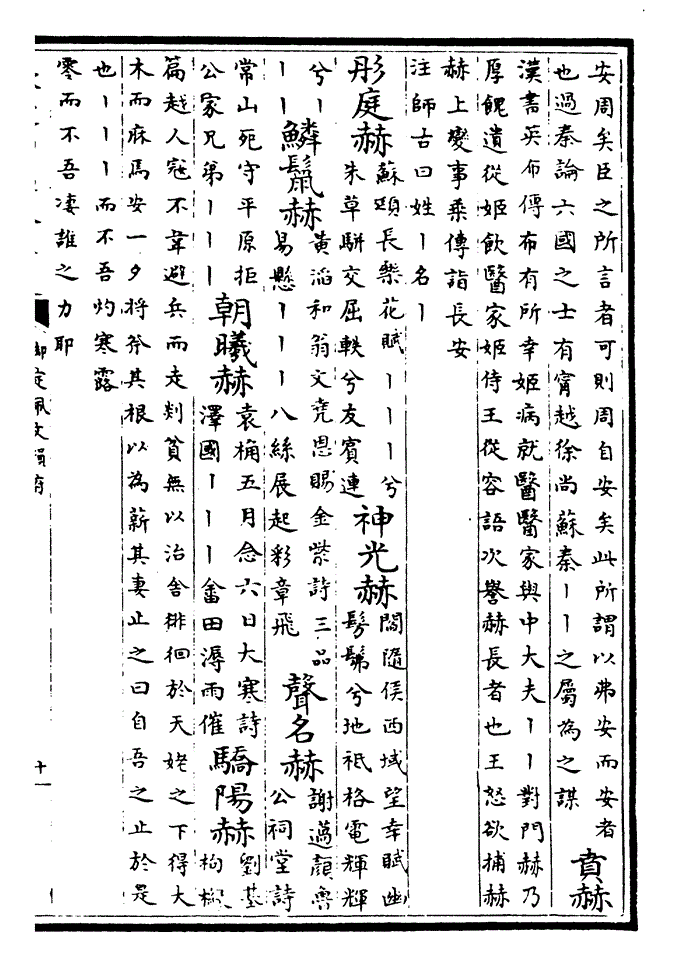 安周矣臣之所言者可則周自安矣此所謂以弗安而安者
也過秦論六國之士有甯越徐尚蘇秦丨丨之屬為之謀 賁赫
漢書英布傳布有所幸姬病就醫醫家與中大夫丨丨對門赫乃
厚餽遺從姬飲醫家姬侍王從容語次譽赫長者也王怒欲捕赫
赫上變事乗傳詣長安
注師古曰姓丨名丨
彤庭赫
蘇頲長樂花賦丨丨丨兮
朱草駢交屈軼兮友賓連
神光赫
閻隨侯西域望幸賦幽
髣髴兮地祗格電輝輝
兮丨
丨丨
鱗鬛赫
黄滔和翁文堯恩賜金紫詩三品
易懸丨丨丨八絲展起彩章飛
聲名赫
謝薖顔魯
公祠堂詩
常山死守平原拒
公家兄弟丨丨丨
朝曦赫
袁桷五月念六日大寒詩
澤國丨丨丨畬田潯雨催
驕陽赫
劉基
枸櫞
篇越人冦不韋避兵而走剡貧無以治舍徘徊於天姥之下得大
木而庥焉安一夕將斧其根以為薪其妻止之曰自吾之止於是
也丨丨丨而不吾灼寒露
零而不吾凄誰之力耶
御定佩文韻府
十一